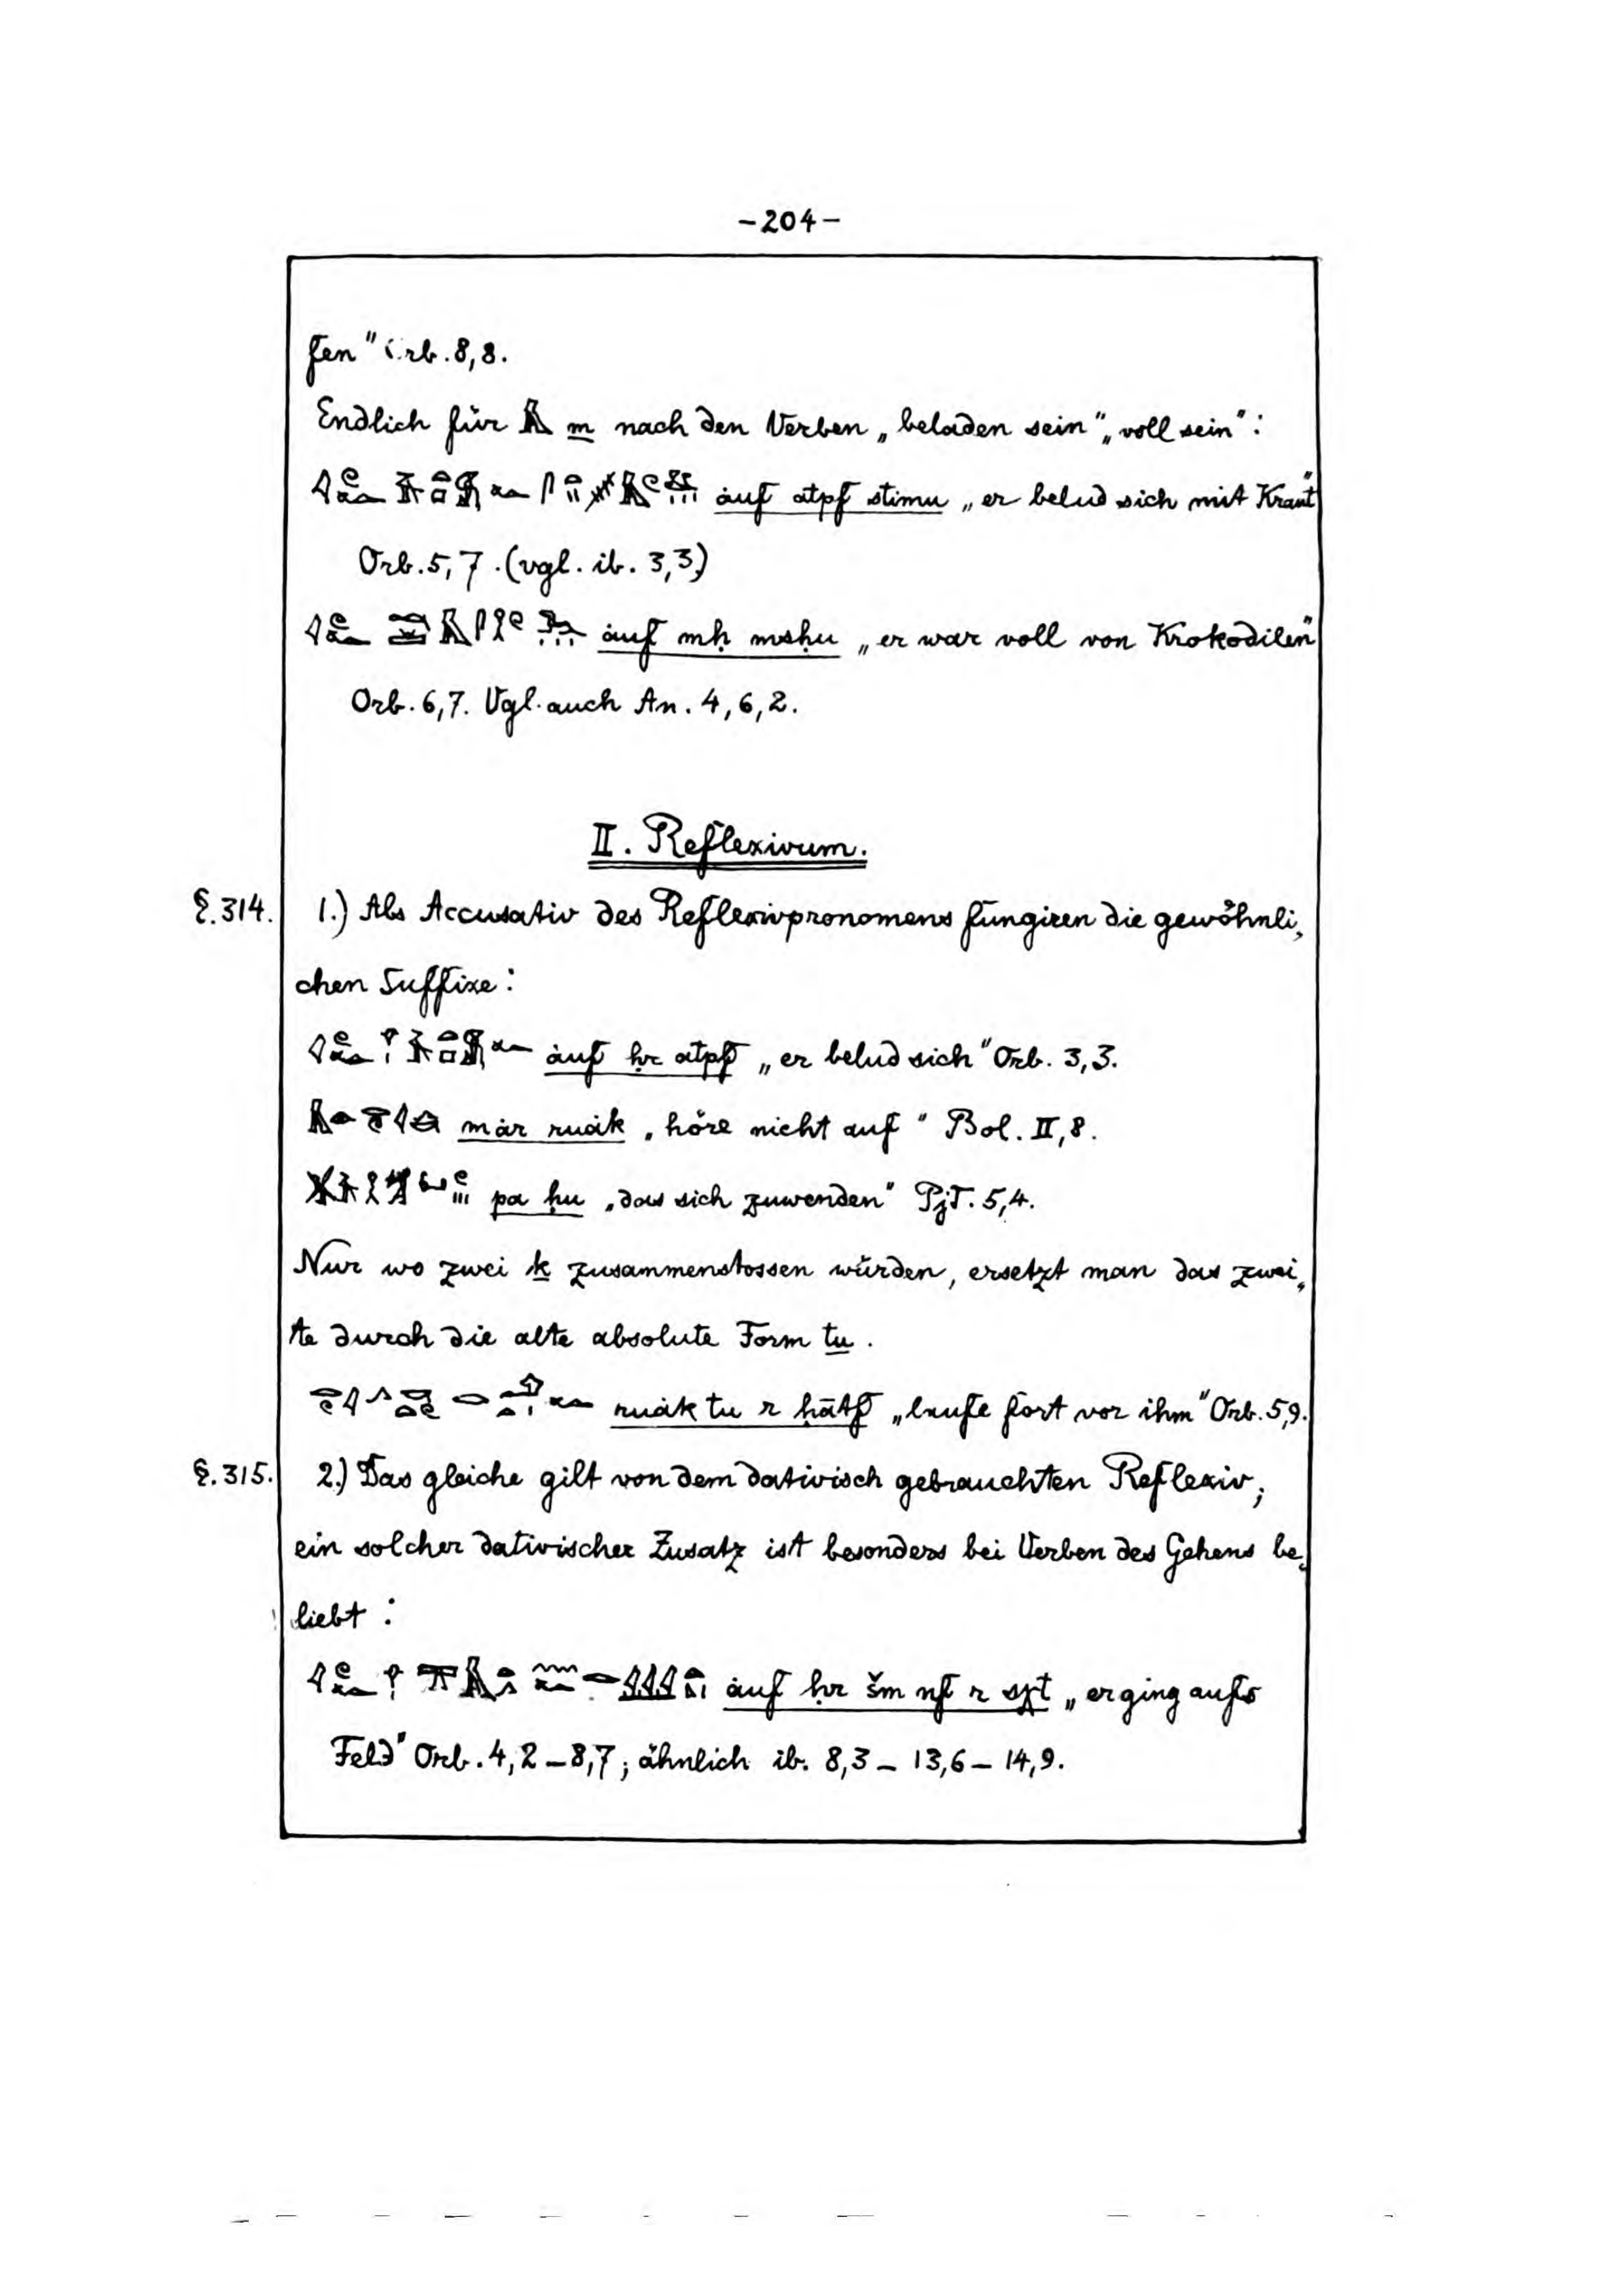 -204-
fen" Orb. 8,8.
Endlich für 𓅓 m nach den Verben „beladen sein", „voll sein":
ȧuf atpf stimu „er belud sich mit Kraut"
Orb. 5,7. (vgl. ib. 3,3)
ȧuf mḥ msḥu „er war voll von Krokodilen"
Orb. 6,7. Vgl. auch An. 4,6,2.
II. Reflexivum.
§. 314. 1.) Als Accusativ des Reflexivpronomens fungiren die gewöhnli„
chen Suffixe:
ȧuf ḥr atpf „er belud sich" Orb. 3,3.
mȧr ruȧk „höre nicht auf" Bol. II,8.
pa ḥu „das sich zuwenden" PjT. 5,4.
Nur wo zwei k zusammenstossen würden, ersetzt man das zwei„
te durch die alte absolute Form tu.
ruȧk tu r ḥātf „laufe fort vor ihm" Orb. 5,9.
§. 315. 2.) Das gleiche gilt von dem dativisch gebrauchten Reflexiv;
ein solcher dativischer Zusatz ist besonders bei Verben des Gehens be„
liebt:
ȧuf ḥr šm nf r sχt „er ging aufs
Feld" Orb. 4,2 – 8,7; ähnlich ib. 8,3 – 13,6 – 14,9.